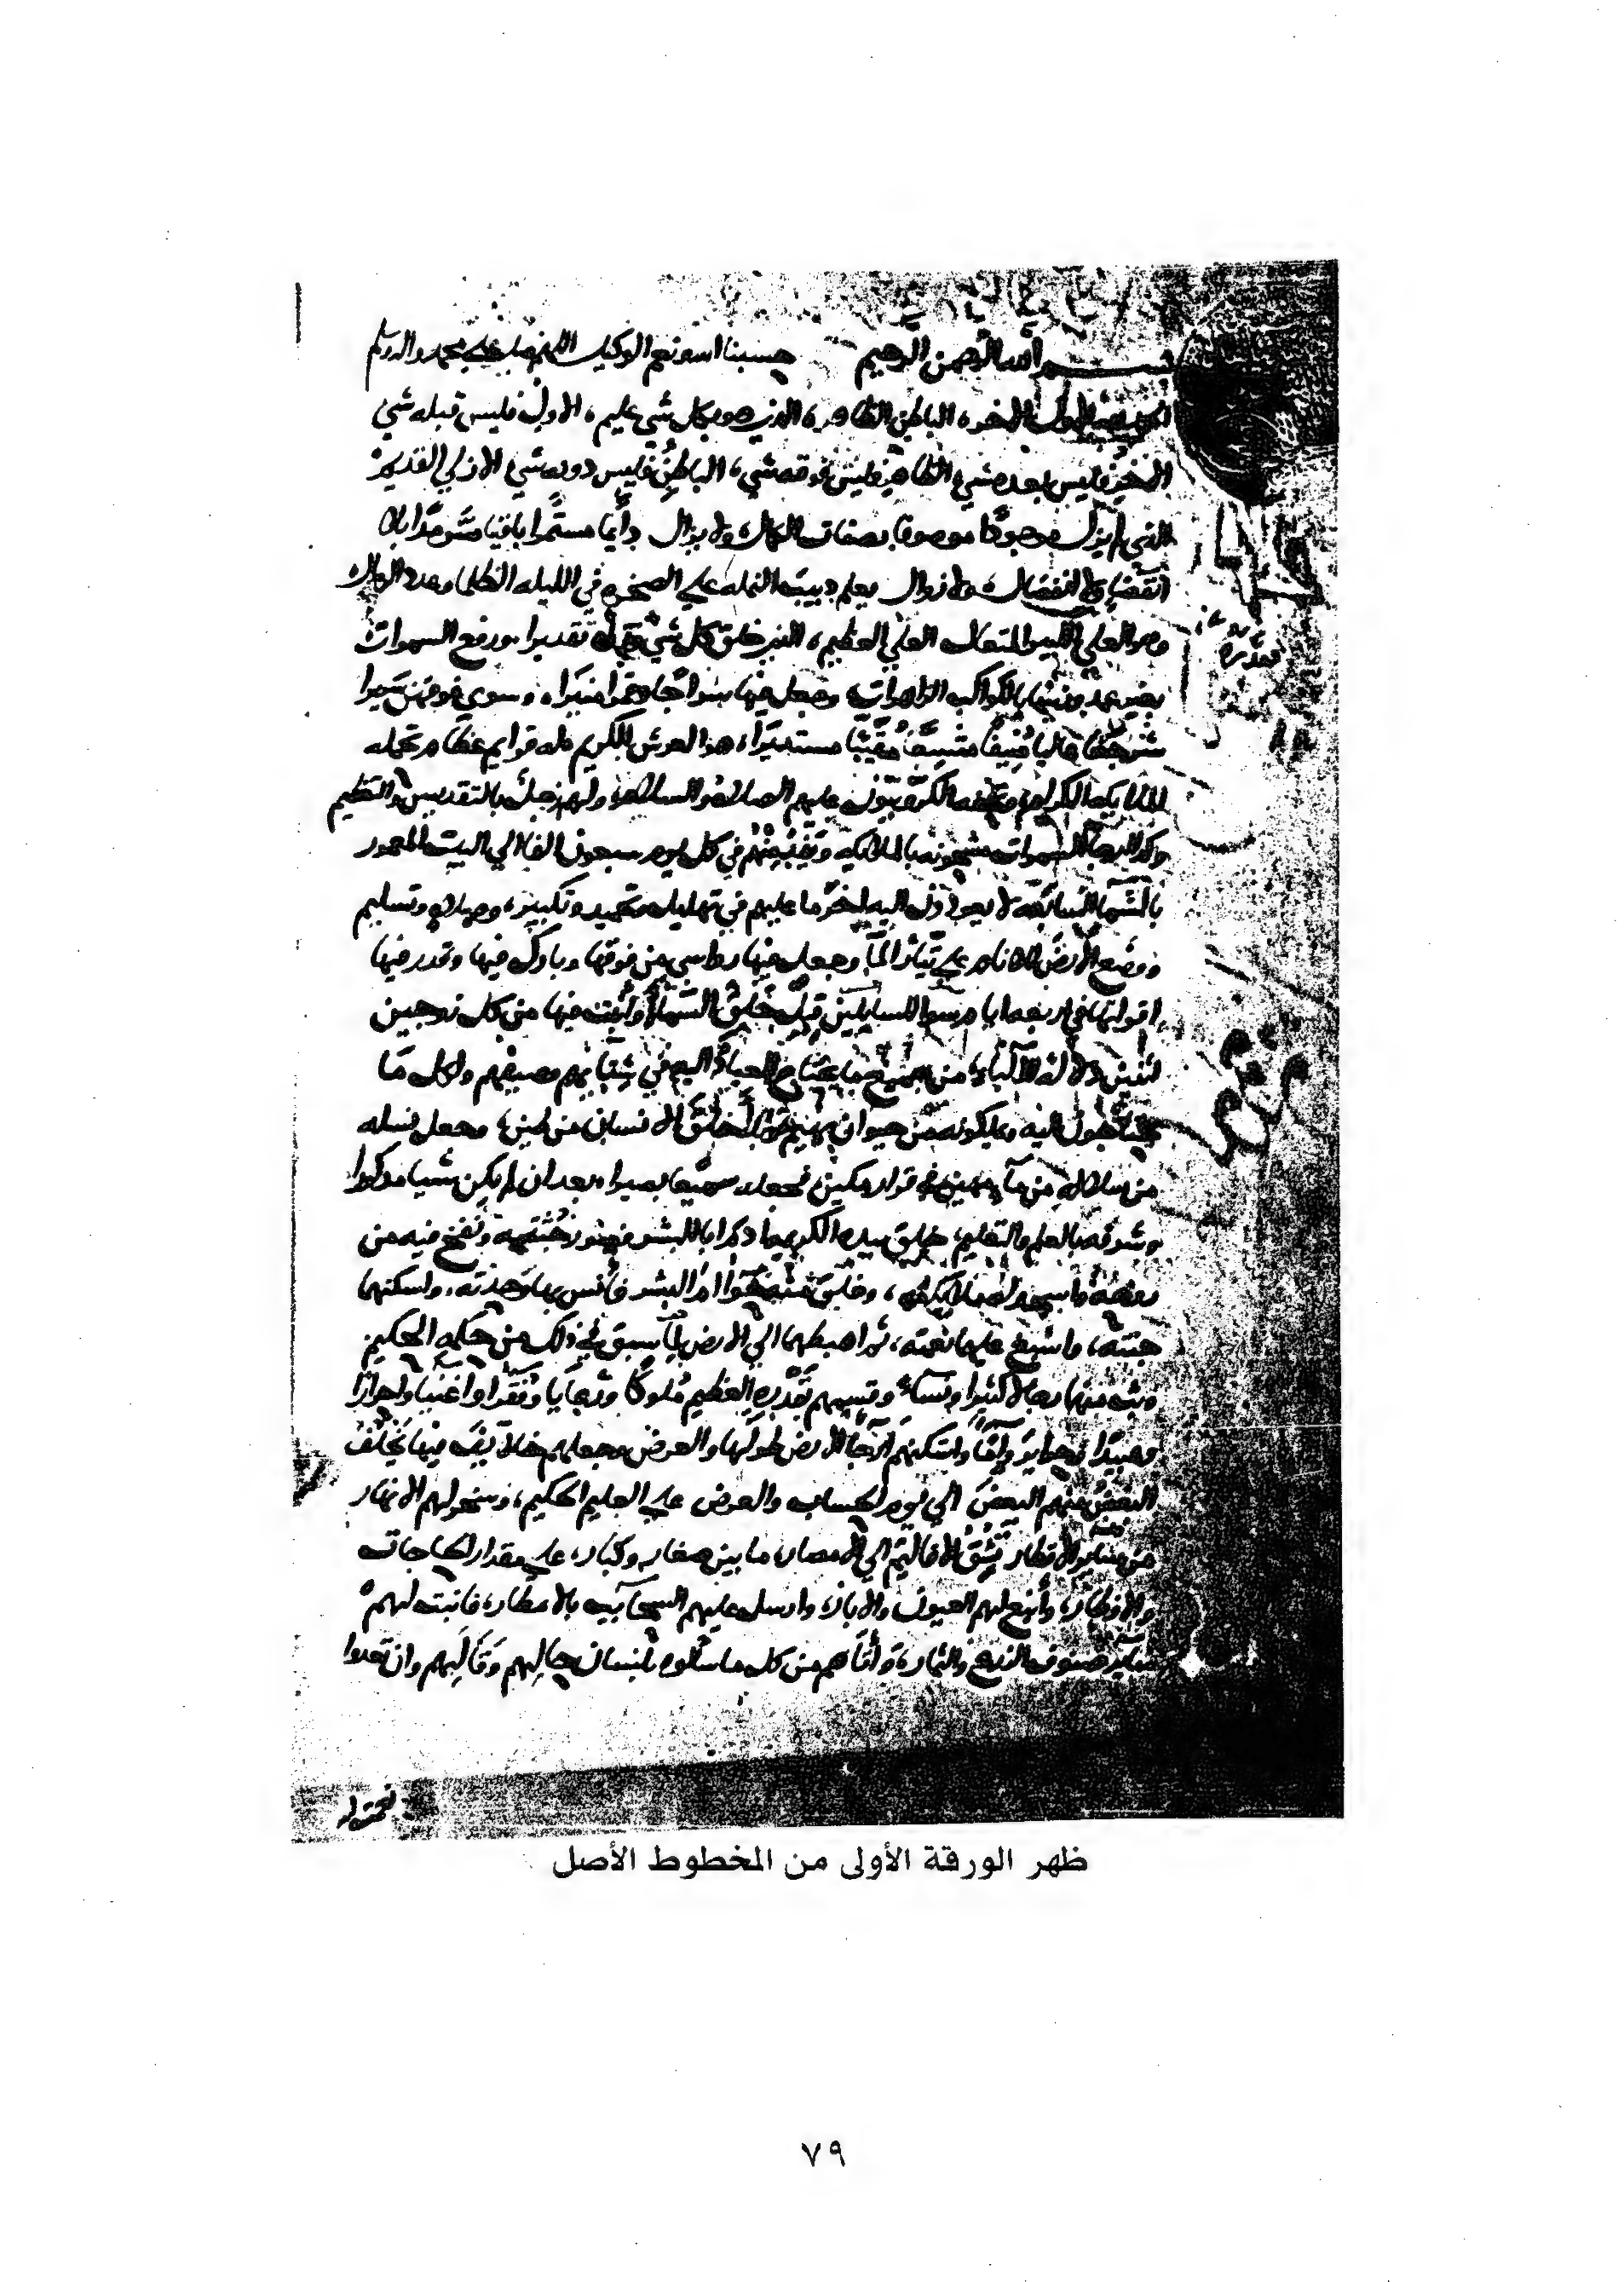 بسم الله الرحمن الرحيم حسبنا الله ونعم الوكيل اللهم صل على محمد واله وسلم
الحمد لله الاول الاخر، الباطن الظاهر، الذي هو بكل شي عليم، الاول فليس قبله شي
الاخر فليس بعده شي، الظاهر فليس فوقه شي، الباطن فليس دونه شي الازلي القديم
الذي لم يزل موجودًا موصوفا بصفات الكمال، ولا يزال دائما مستمرا باقيا سرمدا بلا
انقضا ولا انفصال، ولا زوال يعلم دبيب النمله على الصخره في الليله الظلما وعدد الرمال
وهو العلي الكبير المتعال العلي العظيم، الذي خلق كل شي فقدره تقديرا، ورفع السموات
بغير عمد وزينها بالكواكب الزاهرات، وجعل فيها سراجا وقمرا منيرا، وسوى فوقهن سريرا
شرجعا عاليا منيفا متسعا مقببا مستديرا، هذا العرش الكريم له قوايم عظام تحمله
الملايكه الكرام وتحفه الكروبيون عليهم الصلاة والسلام، ولهم زجل بالتقديس والتعظيم
وكذا ارجا السموات مشحونه بالملايكه ويفد منهم في كل يوم سبعون الفا الي البيت المعمور
بالسما السابعة لا يعودون اليه اخر ما عليهم في تهليل وتحميد وتكبير، وصلاة وتسليم
ووضع الارض للانام على تيار الما وجعل فيها رواسي من فوقها وبارك فيها وقدر فيها
اقواتها في اربعه ايام سوا للسايلين قبل خلق السما، وانبت فيها من كل زوجين
اثنين دلالة للالبا، من جميع ما يحتاج العباد اليه في شتايهم وصيفهم ولكل ما
يحتاجون اليه ويملكونه من حيوان بهيم، وبدا خلق الانسان من طين، وجعل نسله
من سلالة من ما مهين، في قرار مكين، فجعله سميعا بصيرا، بعد ان لم يكن شيا مذكورا
وشرفه بالعلم والتعليم، خلق بيده الكريمة ادم ابا البشر وصور جثته ونفخ فيه من
روحه واسجد له ملايكته، وخلق منه زوجه حوا ام البشر فانس بها وحدته، واسكنهما
جنته، واسبغ عليهما نعمته، ثم اهبطهما الى الارض لما سبق في ذلك من حكمه الحكيم
وبث منهما رجالا كثيرا ونسا، وقسمهم بقدره العظيم ملوكا ورعايا وفقرا واغنيا واحرارا
وعبيدا وحراير واما واسكنهم ارجا الارض طولها والعرض وجعلهم خلايف فيها يخلف
البعض منهم البعض الي يوم الحساب والعرض على العليم الحكيم، وسخر لهم الانهار
من ساير الاقطار تشق الاقاليم الي الامصار، ما بين صغار وكبار، على مقدار الحاجات
والاوطار، وانبع لهم العيون والابار، وارسل عليهم السحايب بالامطار، فانبت لهم
ساير صنوف الزرع والثمار، واتاهم من كل ما سالوه بلسان حالهم وقالهم وان تعدوا
نعمت الله
ظهر الورقة الأولى من المخطوط الأصل
٧٩